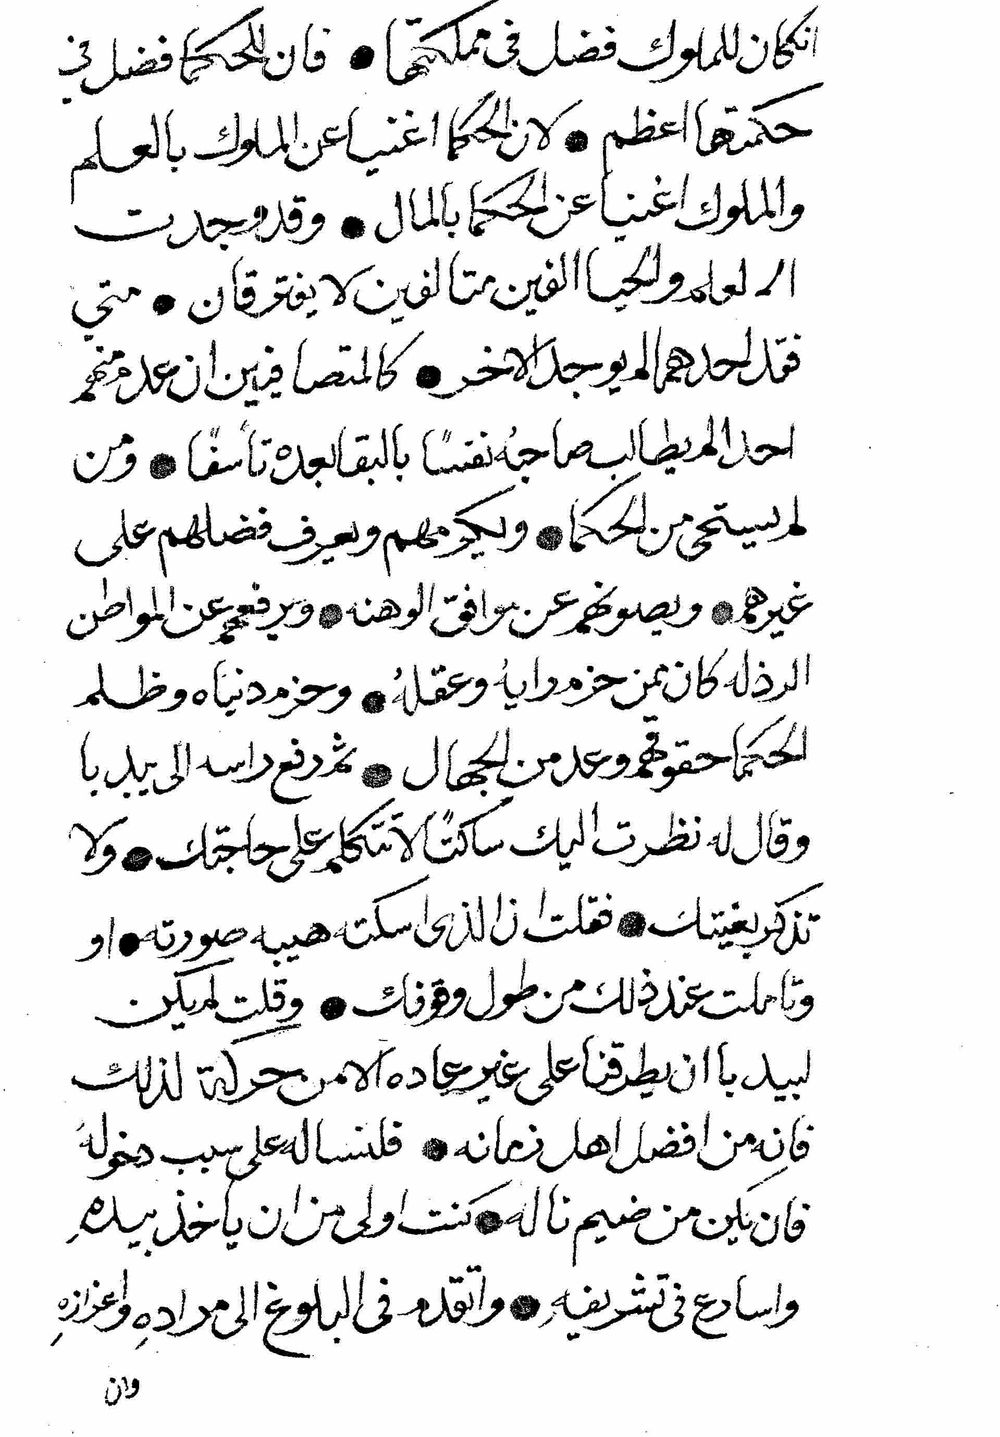 انكان للملوك فضل في مملكتها ● فان للحكما فضل في
حكمتها اعظم ● لان الحكما اغنيا عن الملوك بالعلم
والملوك اغنيا عن الحكما بالمال ● وقد وجدت
العلم والحيا الفين متالفين لا يفترقان ● متي
فقد احدهما لم يوجد الاخر ● كالمتصافيين ان عدم منهم
احدا لم يطالب صاحبهُ نفسًا بالبقا بعده تأسفًا ● ومن
لم يستحى من الحكما ● ويكرمهم ويعرف فضلهم على
غيرهم ● ويصونهم عن موافق الوهنه ● ويرفعهم عن المواطن
الرذله كان ممن حزم رايهُ وعقلهُ ● وحزم دنياه وظلم
الحكما حقوقهم وعد من الجهال ● ثم رفع راسه الى بيدبا
وقال له نظرت اليك ساكتًا لا تتكلم على حاجتك ● ولا
تذكر بغيتك ● فقلت ان الذى اسكته هيبه صورته ● او
وتاملت عند ذلك من طول وقوفك ● وقلت لم يكن
لبيدبا ان يطرقنا على غير عاده الا من حركة لذلك
فانه من افضل اهل زمانه ● فلنساله على سبب دخولهُ
فان يكن من ضيم ناله ● كنت اولى من ان ياخذ بيدهِ
واسارع في تشريفهِ ● واتقدم في البلوغ الى مرادهِ واعزازهِ
وان